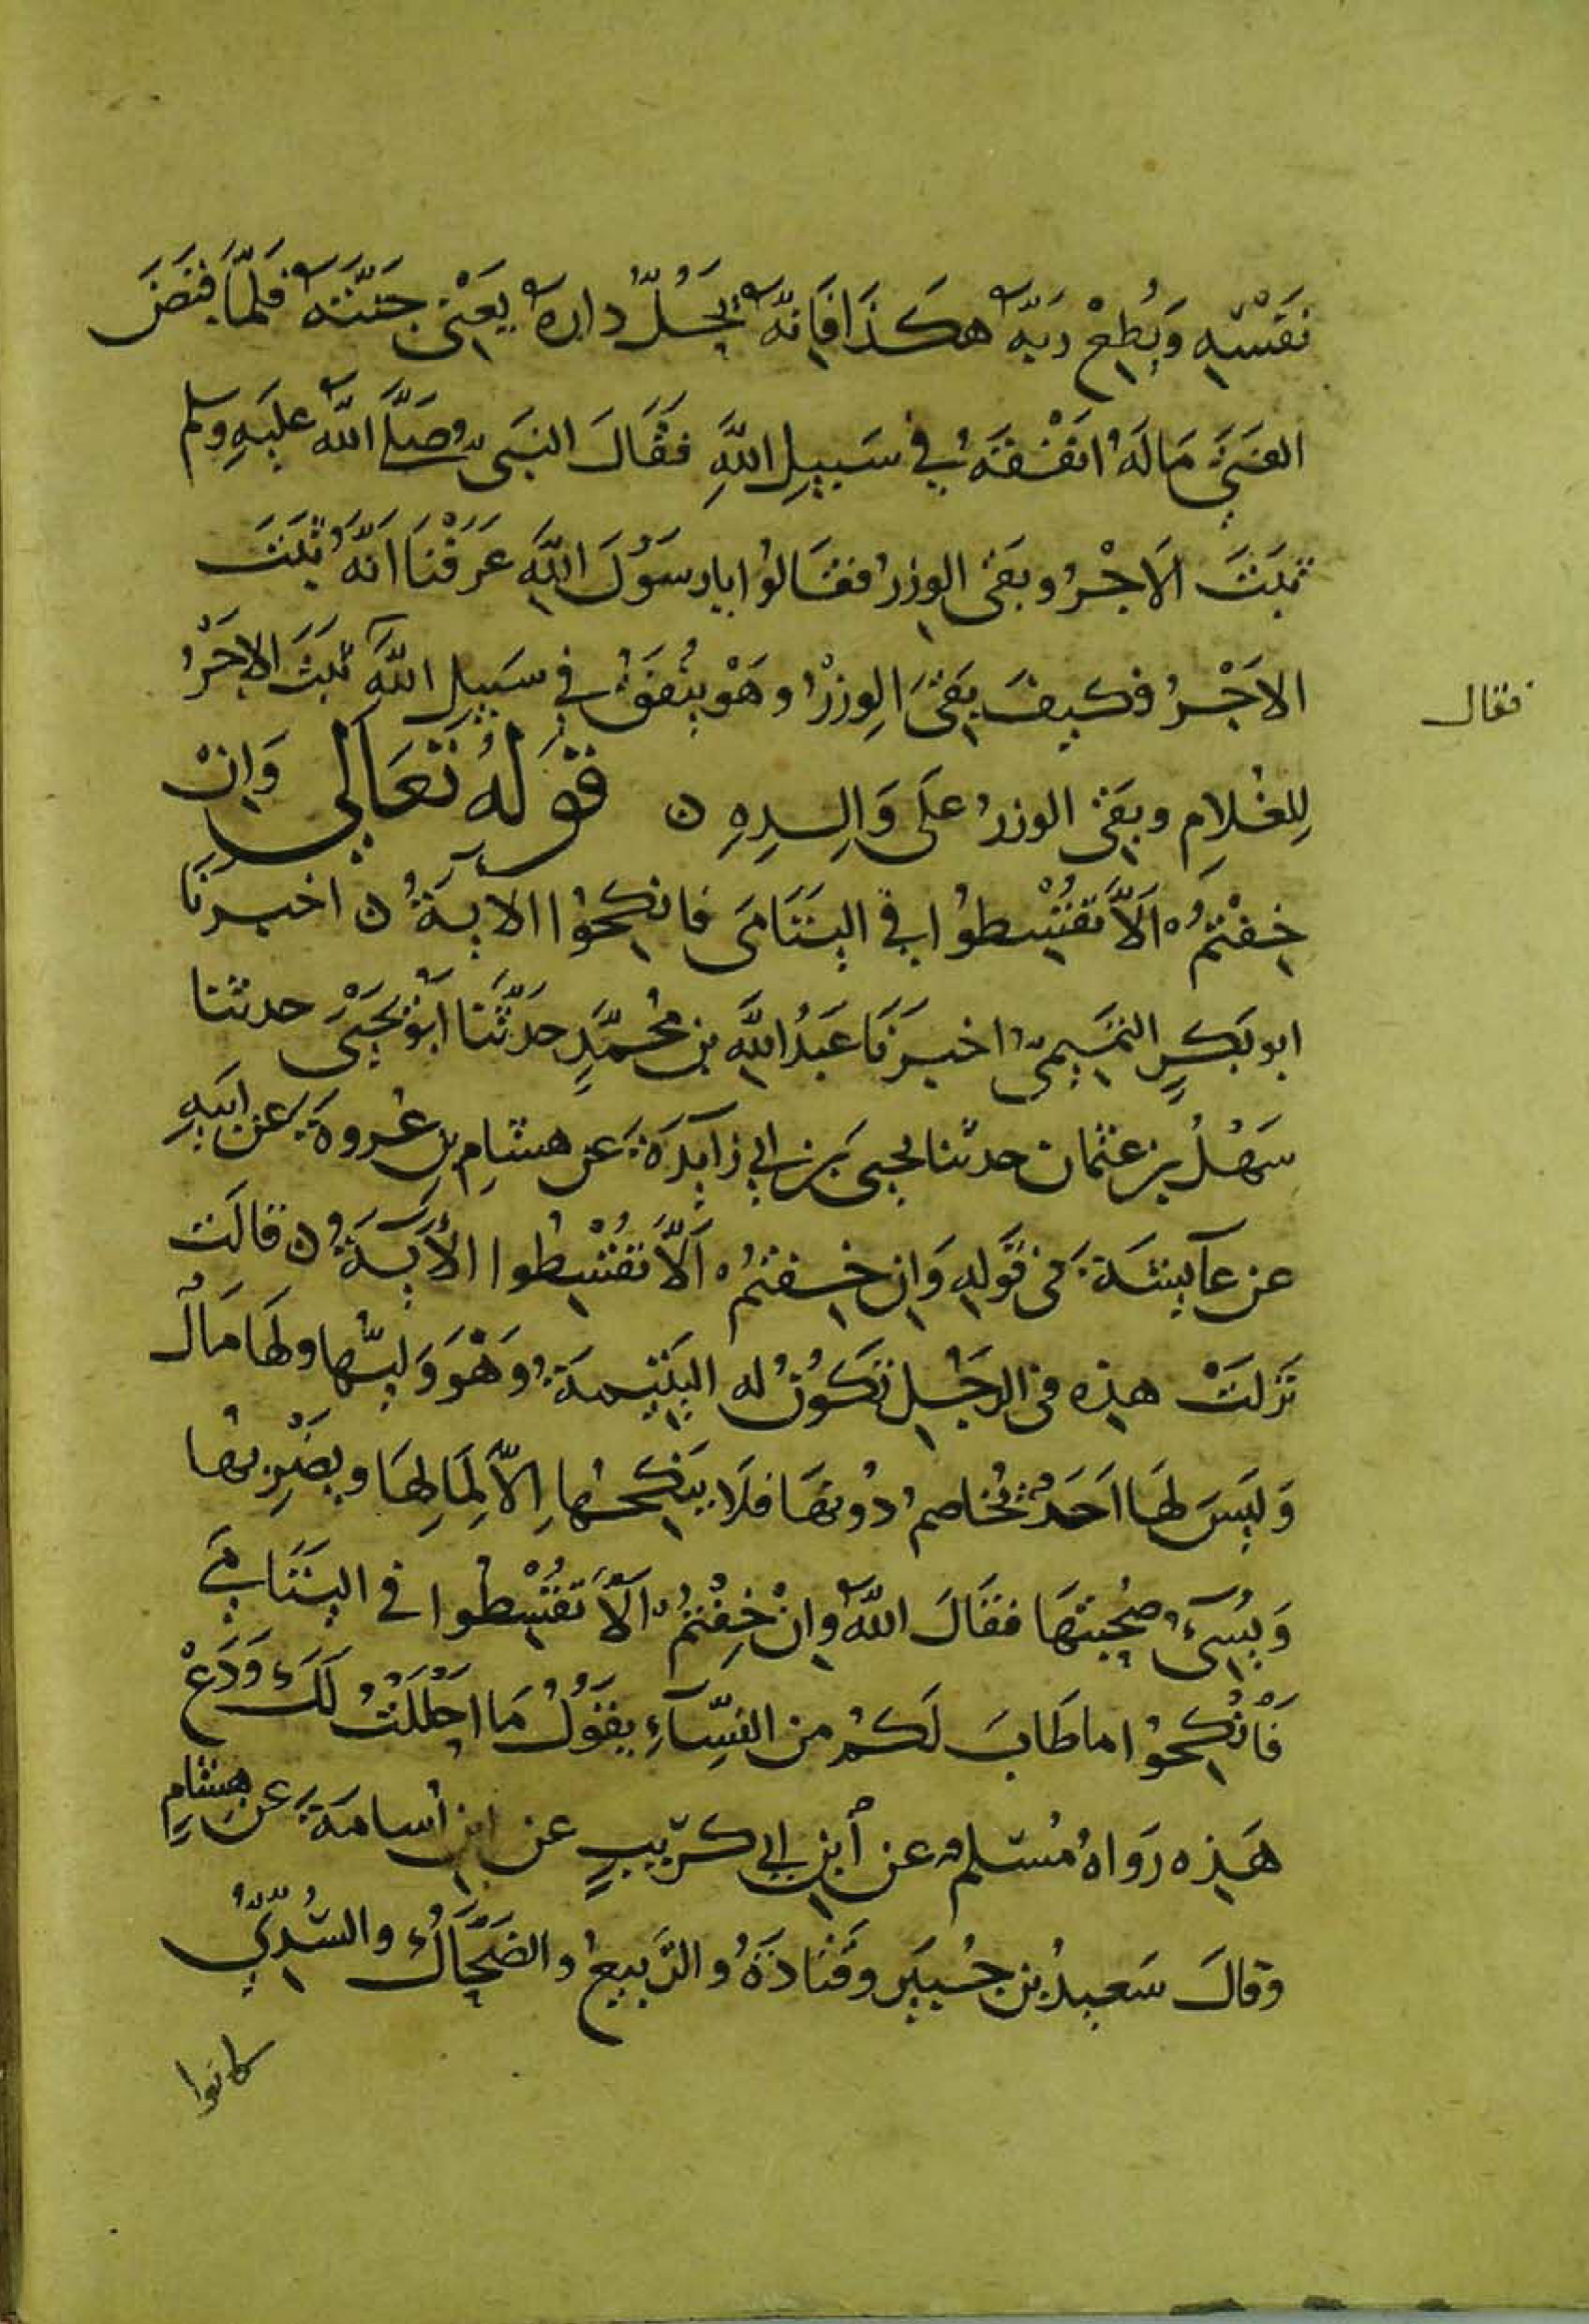 نفسه ويطع ربه هكذا فانه يحل داره يعني جنته فلما قبض
الفتى ماله انفقه في سبيل الله فقال النبي صلى الله عليه وسلم
ثبت الاجر وبقى الوزر فقالوا يا رسول الله عرفنا انه ثبت
الاجر فكيف بقى الوزر وهو ينفق في سبيل الله ثبت الاجر
فقال
للغلام وبقى الوزر على والده ن قوله تعالى وان
خفتم الا تقسطوا في اليتامى فانكحوا الاية ن اخبرنا
ابو بكر التميمي اخبرنا عبد الله بن محمد حدثنا ابو يحيى حدثنا
سهل بن عثمان حدثنا يحيى بن ابي زايدة عن هشام بن عروة عن ابيه
عن عآيشة في قوله وان خفتم الا تقسطوا الآية ن قالت
نزلت هذه في الرجل تكون له اليتيمة وهو وليها ولها مال
وليس لها احد يخاصم دونها فلا ينكحها الا لمالها ويضربها
ويسيء صحبتها فقال الله وان خفتم الا تقسطوا في اليتامى
فانكحوا ما طاب لكم من النسآء يقول ما احللت لك ودع
هذه رواه مسلم عن ابن ابي كريب عن ابن اسامة عن هشام
وقال سعيد بن جبير وقتادة والربيع والضحاك والسدي
كانوا